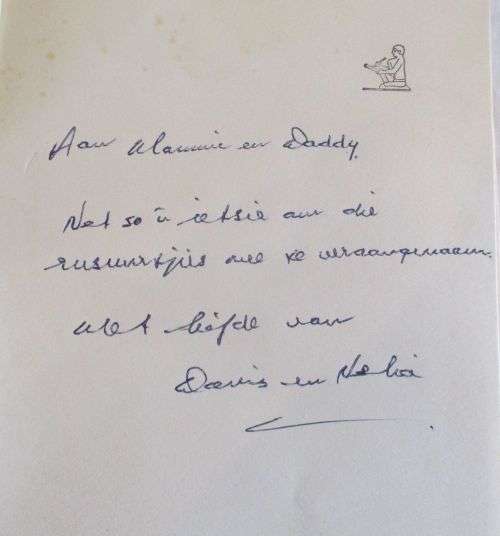 Aan Mammie en Daddy
Net so 'n ietsie om die
rusuurtjies mee te veraangenaam.
Met liefde van
Danis en Nelia